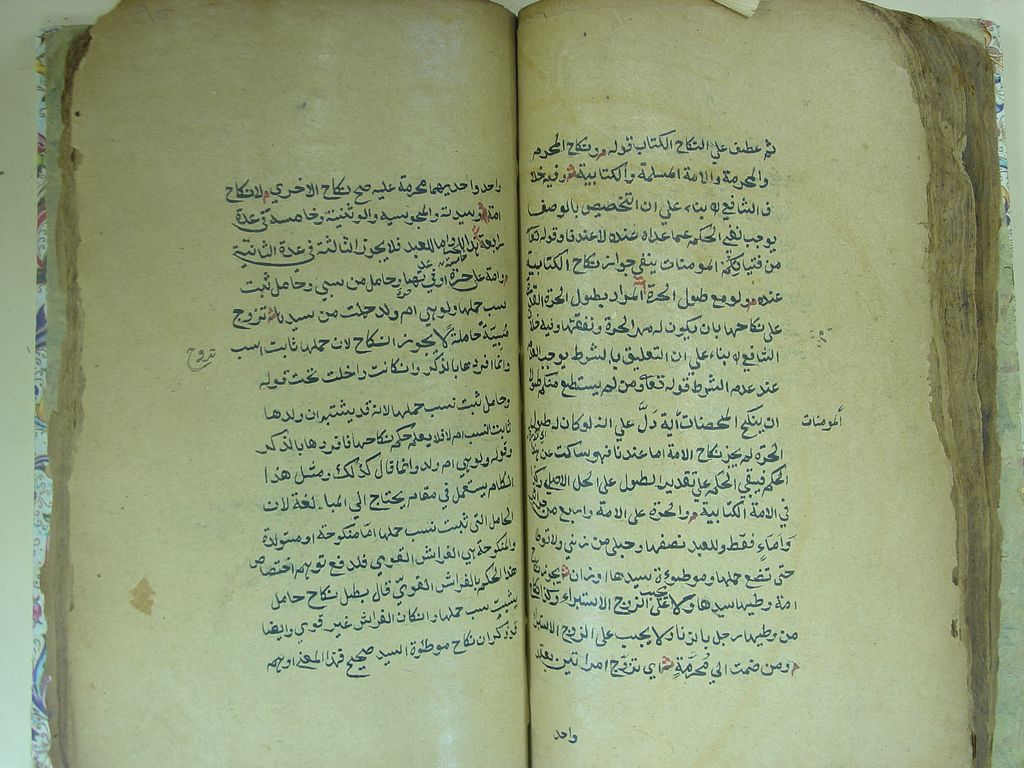 ثم عطف على النكاح الكتاب قوله ونكاح المحرم
والمحرمة والامة المسلمة والكتابية وفيه خلا
ف الشافعي بناء على ان التخصيص بالوصف
يوجب نفي الحكم عما عداه عنده لا عندنا وقوله تعا
من فتياتكم المومنات ينفي جواز نكاح الكتابية
عنده ولو مع طول الحرة المراد بطول الحرة القدرة
على نكاحها بان يكون له مهر الحرة ونفقتها وفيه خلاف
الشافعي بناء على ان التعليق بالشرط يوجب العدم
عند عدم الشرط قوله تعا ومن لم يستطع منكم طولا
ان ينكح المحصنات أية دل علي انه لوكان له طول
المومنات
الحرة لم يجز نكاح الامة اما عندنا فهو ساكت عن هذا
الحكم فيبقي الحكم على تقدير الطول على الحل الاصلي وكذا
في الامة الكتابية والحرة على الامة واربع من
وآماء فقط وللعبد نصفها وحبلى من زنى ولا توطا
حتى تضع حملها وموطوءة سيدها او زان يجوز نكاح
امة وطيها سيدها ولا يجب على الزوج الاستبراء وكذا نكاح
من وطيها رجل بالزنا ولا يجب على الزوج الاستبرا
ومن ضمت الي محرمة اي تزوج امراتين بعقد
واحد
واحد واحديهما محرمة عليه صح نكاح الاخري لا نكاح
امته وسيدته والمجوسية والوثنية وخامسة في عدة
رابعة للحر واما للعبد فلا يجوز الثالثة في عدة الثانية
وامة على حرة او في عدتها وحامل من سبي وحامل ثبت
نسب حملها ولو هي ام ولد حملت من سيدها تزوج
مسبية حاملة لا يجوز النكاح لان حملها ثابت النسب
تزوج
وانما افردها بالذكر وان كانت داخلة تحت قوله
وحامل ثبت نسب حملها لانه قد يشتبه ان ولدها
ثابت النسب ام لا فلا يعلم حكم نكاحها فافردها بالذكر
وقوله ولو هي ام ولد وانما قال كذلك ومثل هذا
الكلام يستعمل في مقام يحتاج الي المبالغة لان
الحامل التي ثبت نسب حملها اما منكوحة او مستولدة
والمنكوحة هي الفراش القوي فلدفع توهم اختصاص
هذا الحكم بالفراش القوي قال بطل نكاح حامل
يثبت نسب حملها وان كان الفراش غير قوي وايضا
قد ذكر ان نكاح موطوة السيد صحيح فهذا المعنى اوهم